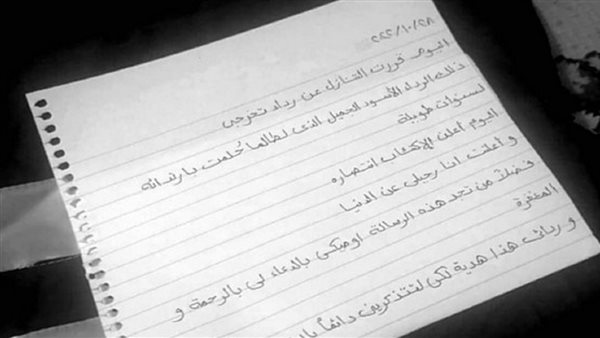 ٢٠٢٢/١٠/٢٨
اليوم قررت التنازل عن رداء تخرجي
ذلك الرداء الأسود الجميل الذي لطالما حلمت بارتدائه
لسنوات طويلة
اليوم أعلن الإكتئاب انتصاره
و أعلنت انا رحيلي عن الدنيا
فضلاً من تجد هذه الرسالة، اوصيكي بالدعاء لي بالرحمة و
المغفرة
و ردائي هذا هدية لكي لتتذكريني دائماً